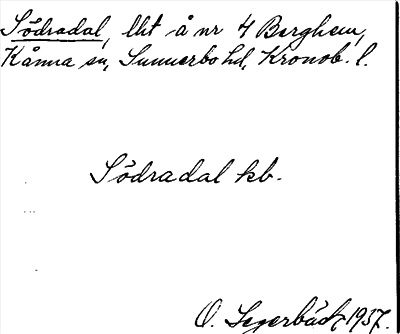 Södradal, lht å nr 4 Berghem,
Kånna sn, Sunnerbo hd, Kronob. l.
Södradal kb.
O. Segerbäck 1937.